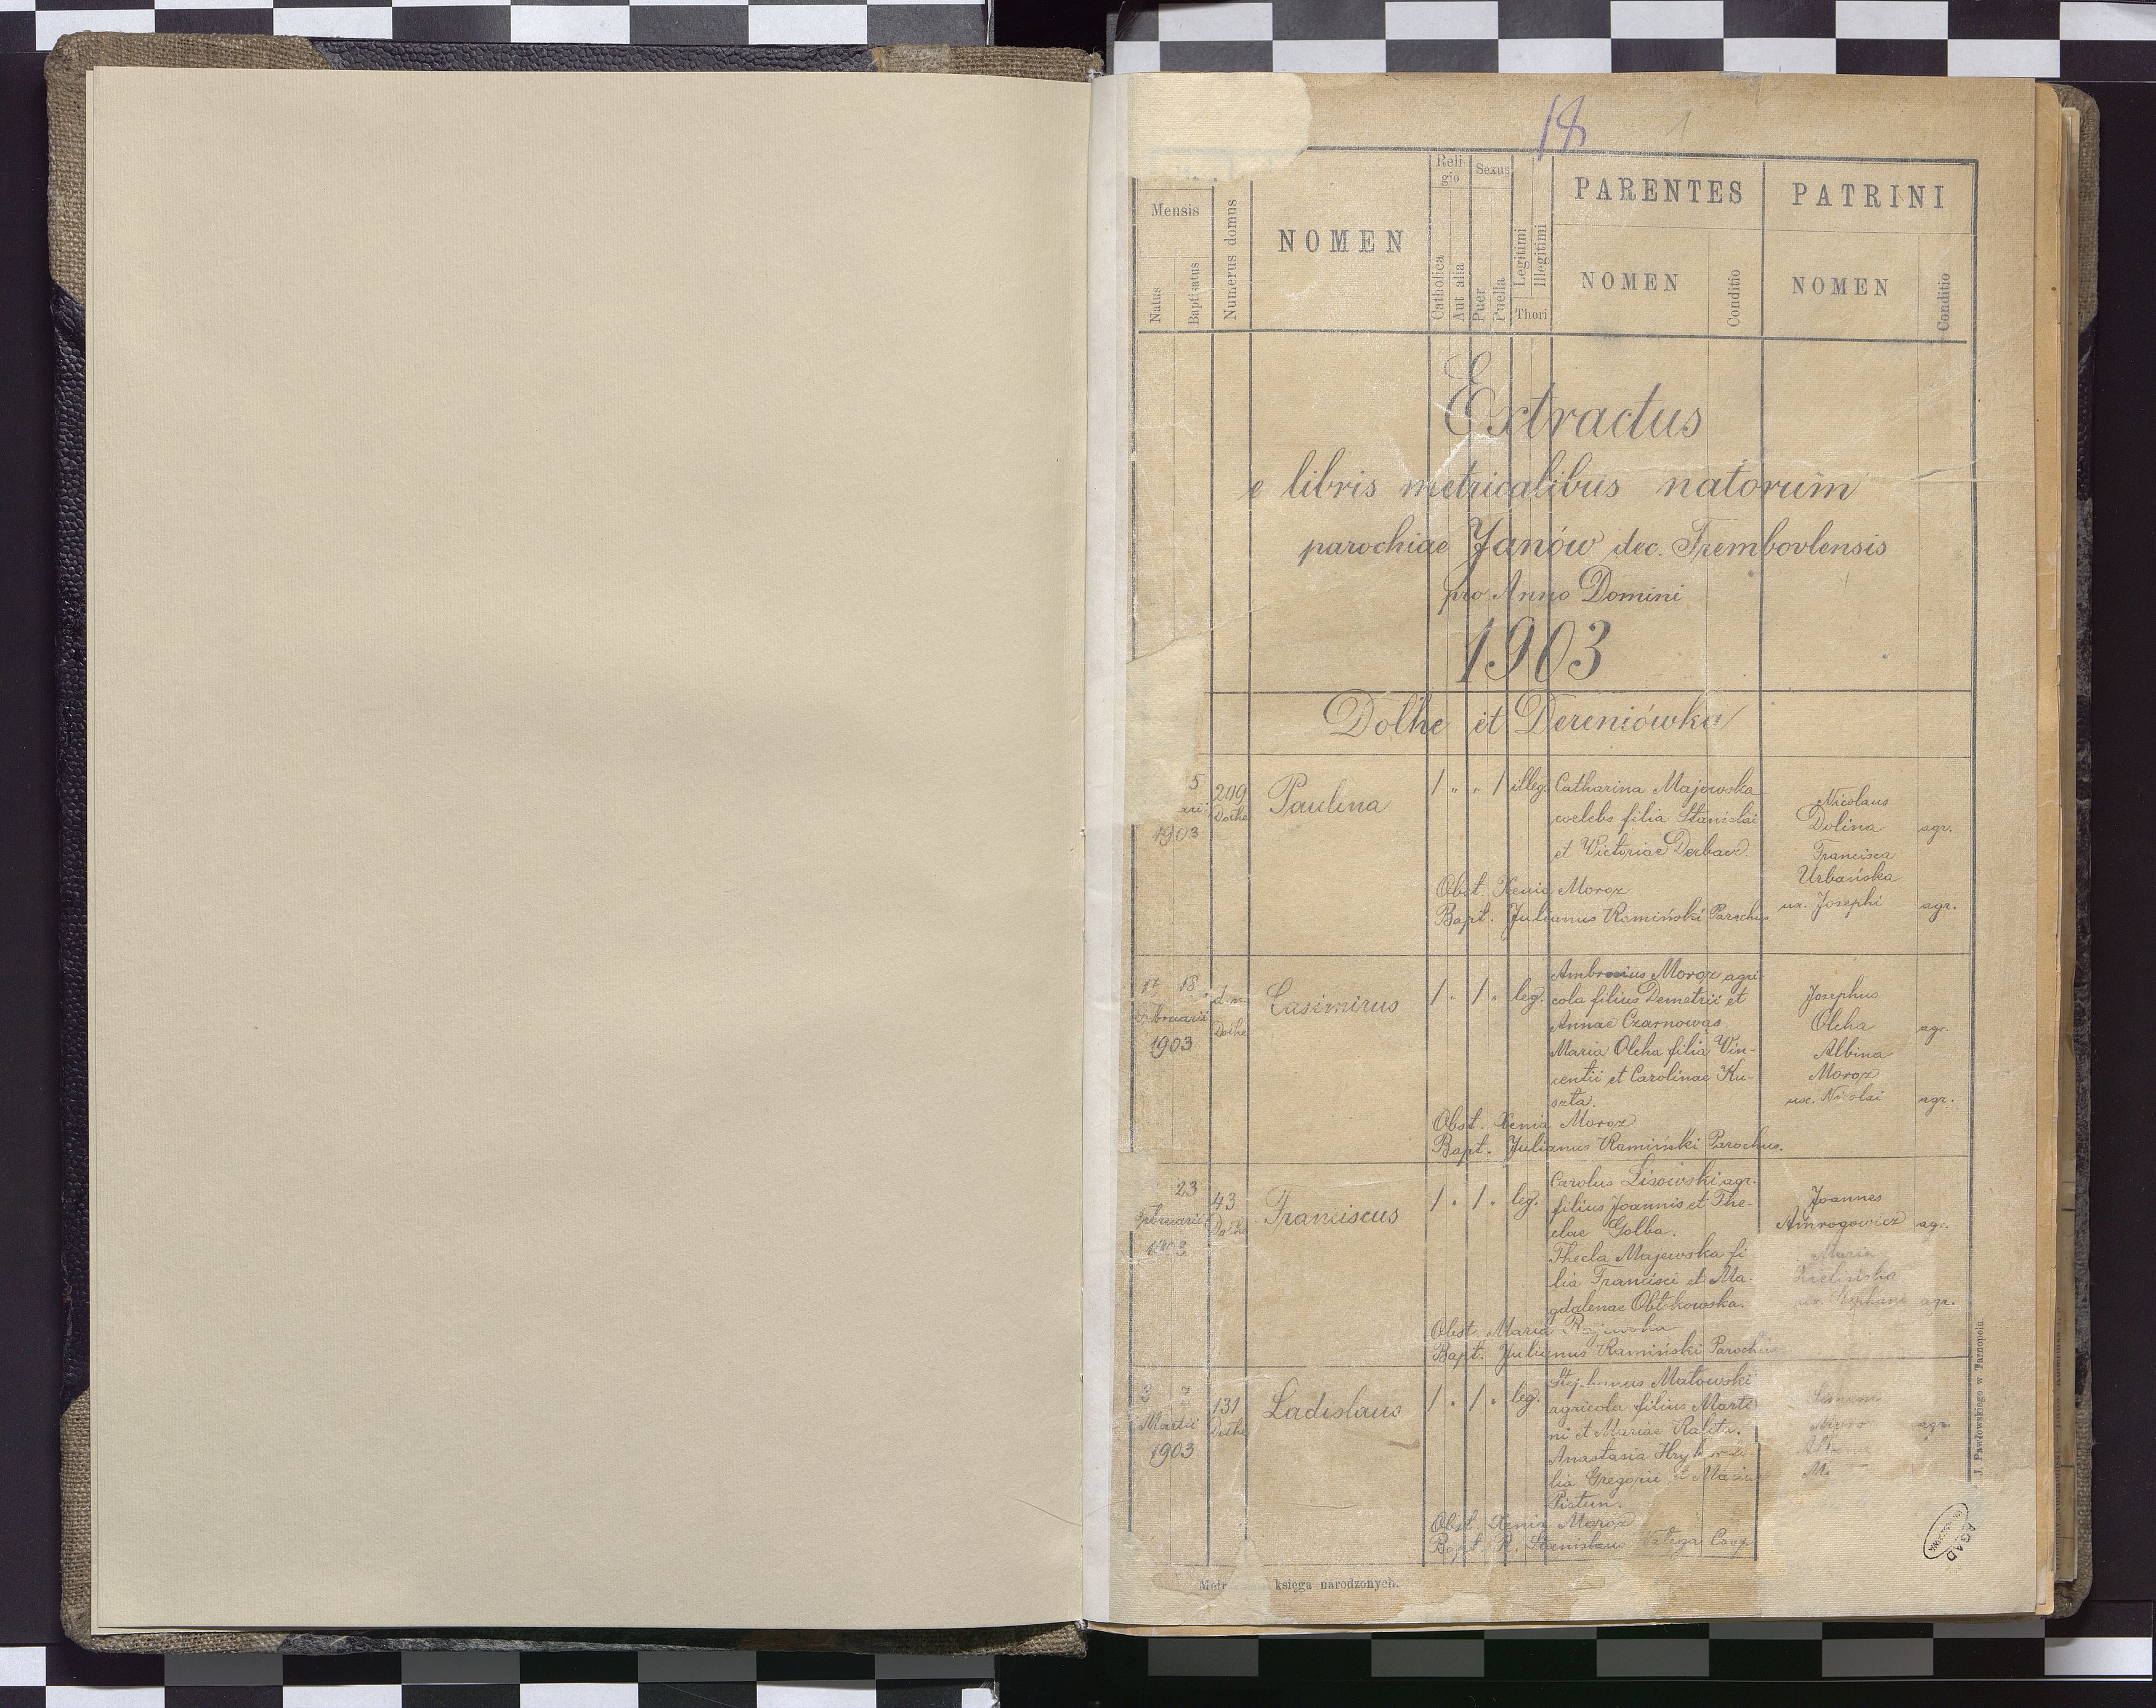 18
1
Mensis
Natus
Baptisatus
Numerus domus
NOMEN
Religio
Catholica
Aut alia
Sexus
Puer
Puella
Legitimi
Illegitimi
Thori
PARENTES
NOMEN
Conditio
PATRINI
NOMEN
Conditio
Extractus
e libris metricalibus natorum
parochiae Janów dec. Trembovlensis
pro Anno Domini
1903
Dolhe et Dereniówka
5
1903
209
Dolhe
Paulina
1 " " 1 illeg.
Catharina Majewska
coelebs filia Stanislai
et Victoriae
Obst. Xenia Moroz
Bapt. Julianus Kamiński Parochus
Nicolaus
Dolina agr.
Francisca
Urbańska
ux. Josephi agr.
17 18
Februarii
1903
Dolhe
Casimirus
1 " 1 " leg.
Ambrosius Moroz agri-
cola filius Demetrii et
Annae Czarnowąs
Maria Olcha filia Vin-
centii et Carolinae Ku-
szta.
Obst. Xenia Moroz
Bapt. Julianus Kamiński Parochus.
Josephus
Olcha agr.
Albina
Moroz
ux. Nicolai agr.
23
Februarii
1903
43
Dolhe
Franciscus
1 " 1 " leg.
Carolus Lisowski agr.
filius Joannis et The-
clae Golba.
Thecla Majewska fi
lia Francisci et Ma-
gdalenae
Obst. Maria
Bapt. Julianus Kamiński Parochus
Joannes
Amrogowicz agr.
Maria
Zielińska
ux. Stephani agr.
3
Martii
1903
131
Dolhe
Ladislaus
1 " 1 " leg.
Stephanus Matowski
agricola filius Marti
ni et Mariae
Anastasia
lia Gregorii et
Pistun.
Obst. Xenia Moroz
Bapt. R. Stanislaus Coop
agr.
Metr księga narodzonych.
J. Pawłowskiego w Tarnopolu.
AGAD